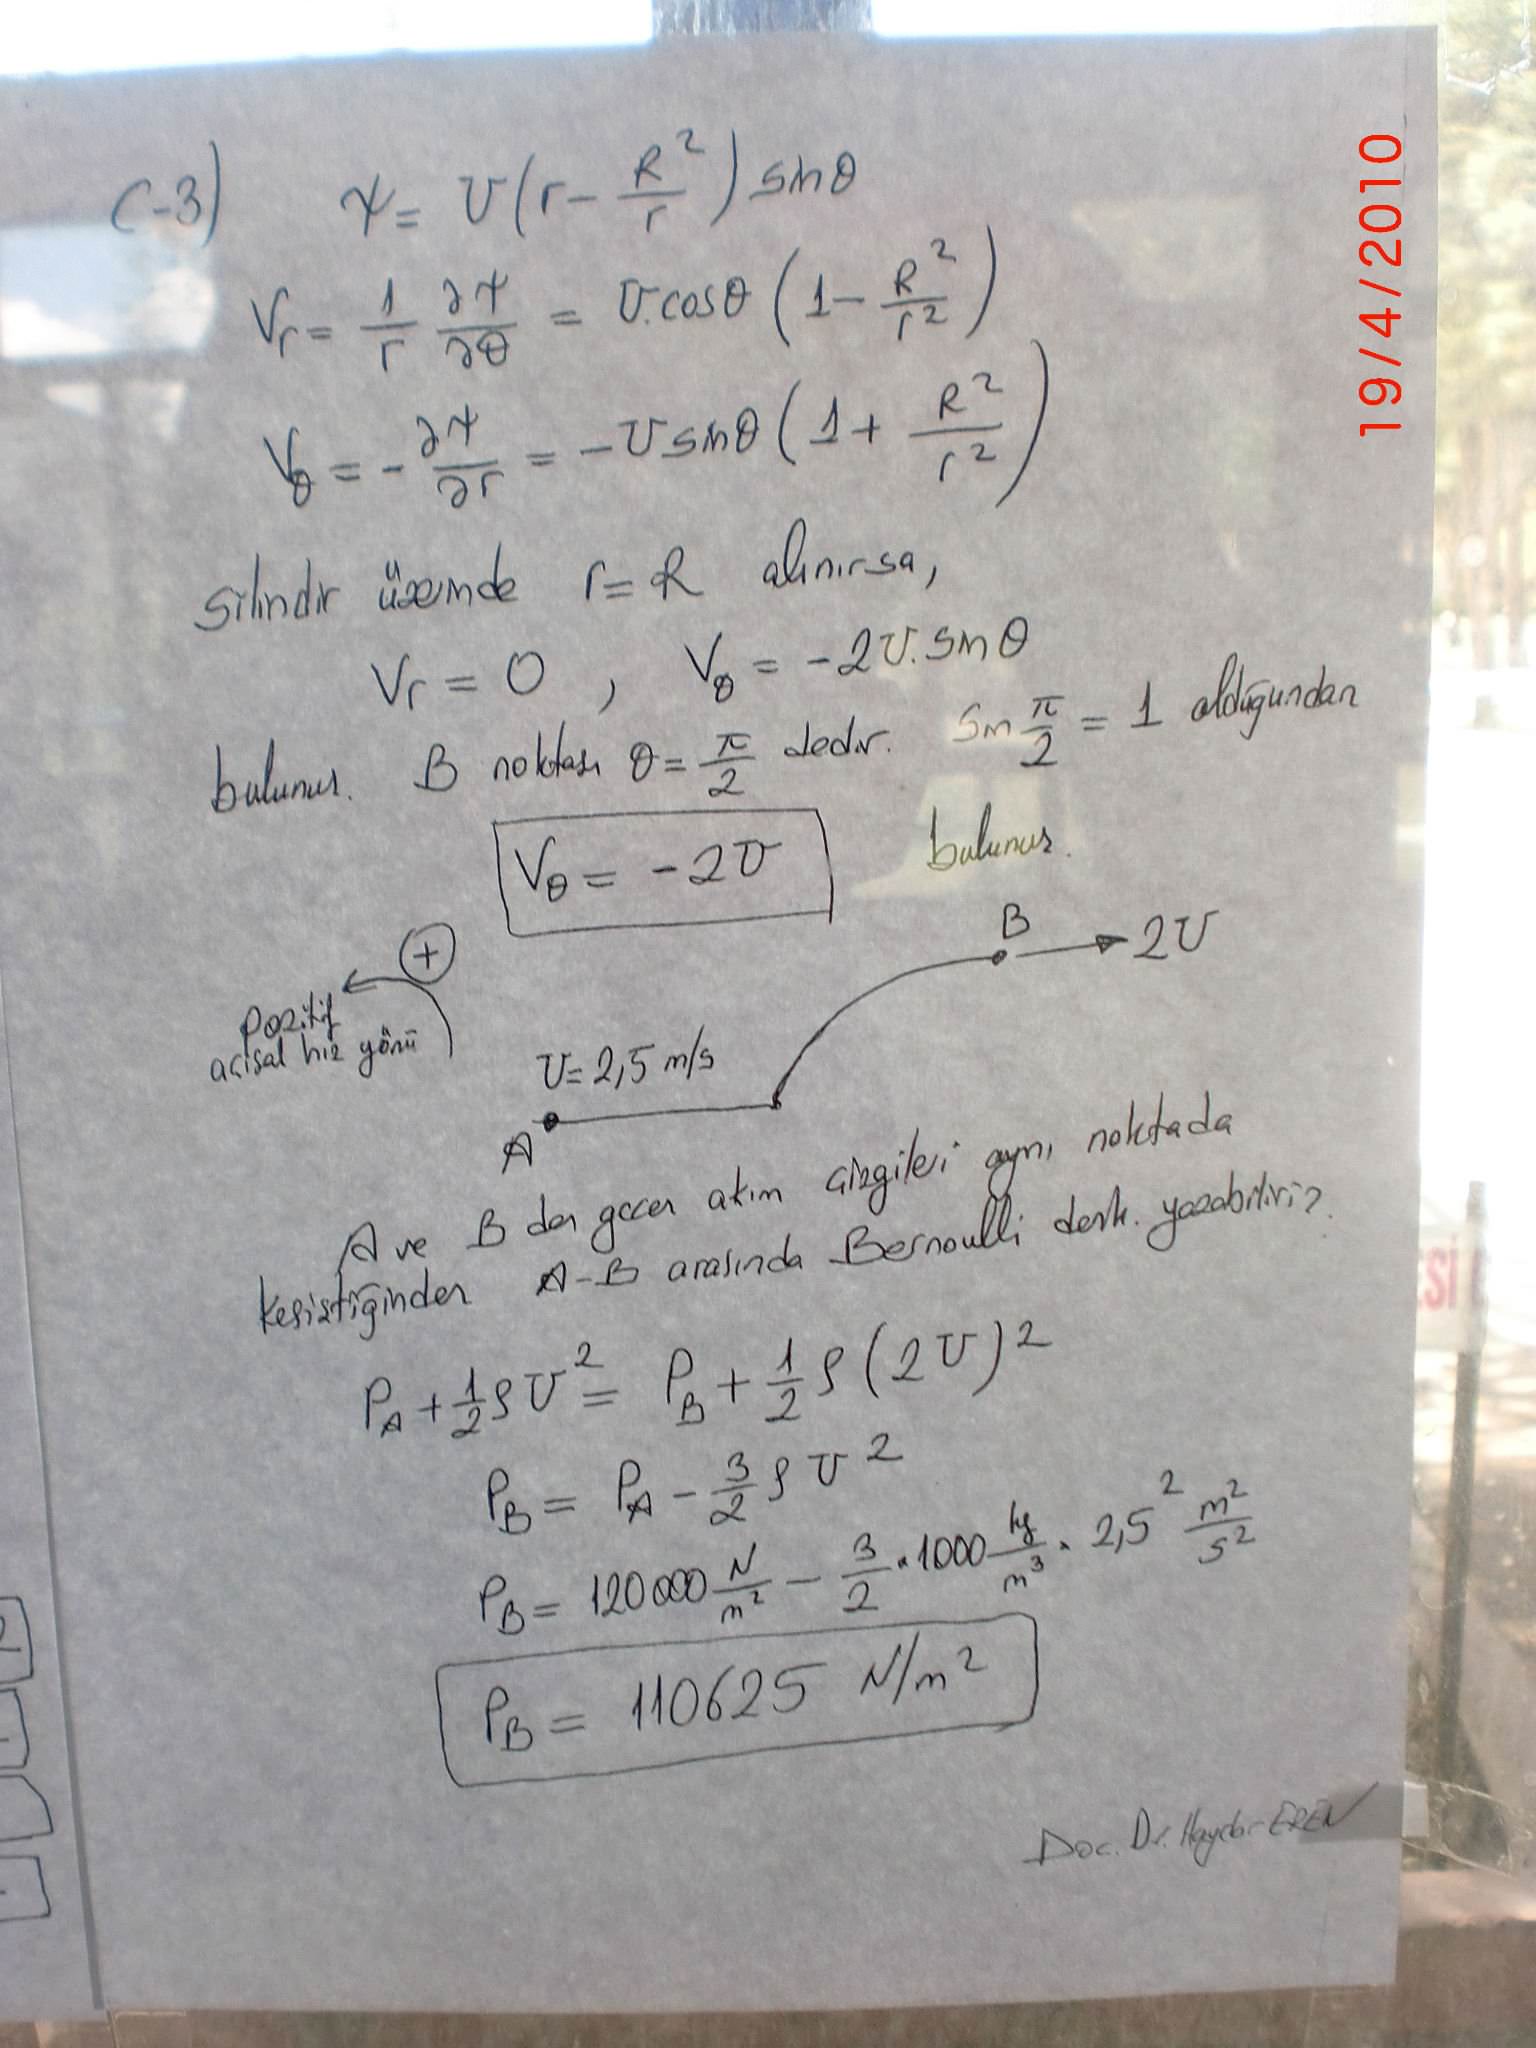 C-3) ψ = U(r - R²/r) sinθ
Vr = 1/r ∂ψ/∂θ = U.cosθ (1 - R²/r²)
Vθ = - ∂ψ/∂r = -U sinθ (1 + R²/r²)
silindir üzerinde r = R alınırsa,
Vr = 0 , Vθ = -2U.sinθ
bulunur. B noktası θ = π/2 dedir. Sin π/2 = 1 olduğundan
Vθ = -2U bulunur.
B 2U
+
Pozitif
açısal hız yönü
U = 2,5 m/s
A
A ve B den geçen akım çizgileri aynı noktada
kesiştiğinden A-B arasında Bernoulli denk. yazabiliriz.
PA + 1/2 ρU² = PB + 1/2 ρ(2U)²
PB = PA - 3/2 ρU²
PB = 120000 N/m² - 3/2 . 1000 kg/m³ . 2,5² m²/s²
PB = 110625 N/m²
Doc. Dr. Haydar EREN
19/4/2010